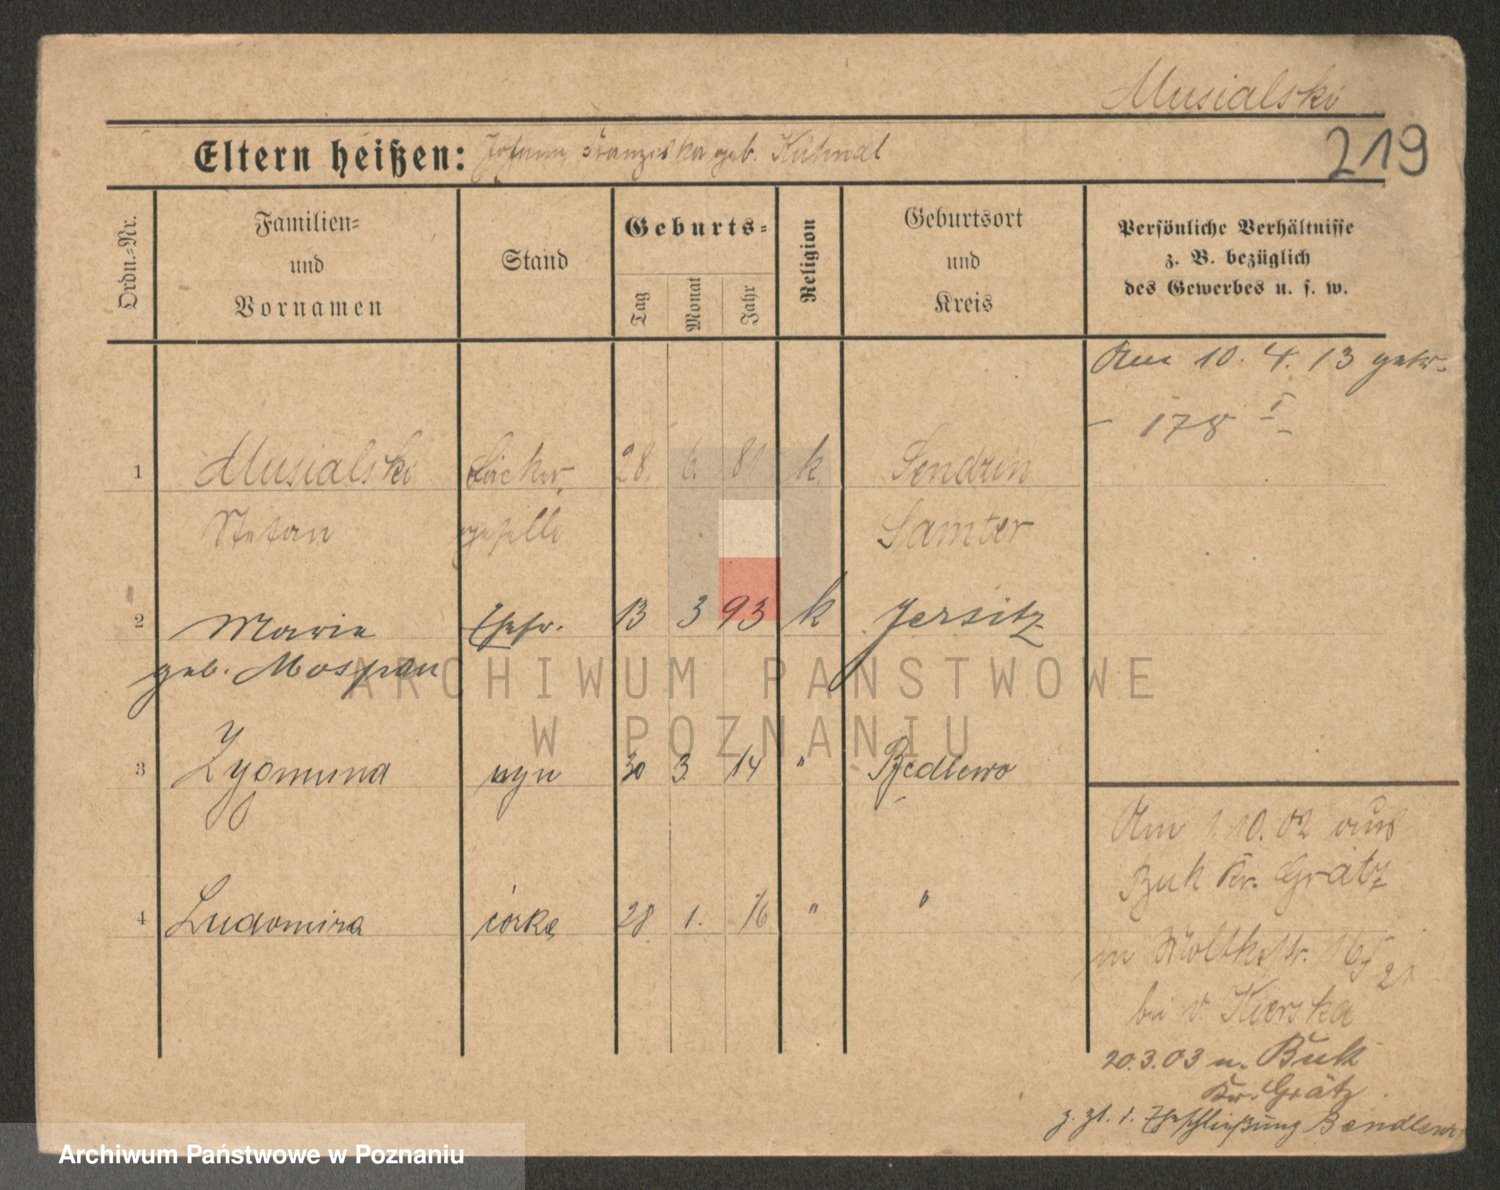 Musialski
219
Eltern heißen: Johann Franziska geb. Kühnal
Ordn.-Nr.
Familien-
und
Vornamen
Stand
Geburts-
Tag
Monat
Jahr
Religion
Geburtsort
und
Kreis
Persönliche Verhältnisse
z. B. bezüglich
des Gewerbes u. s. w.
Am 10. 4. 13 getr.
- 178 I -
1 Musialski 28. 6. 8 k Sendzin
Stefan geselle Samter
2 Marie Ehefr. 13 3 93 k Jersitz
geb. Mospan
3 Zygmund syn 30 3 14 " Będlewo
4 Ludomira córka 28. 1. 16 " "
Am 1.10.02 aus
Buk Kr. Grätz
Moltkestr. 16
bei v Kierska
20.3.03 n. Buk
Kr. Grätz
z. Zt. d. Eheschließung Bendlewo
ARCHIWUM PAŃSTWOWE
W POZNANIU
Archiwum Państwowe w Poznaniu